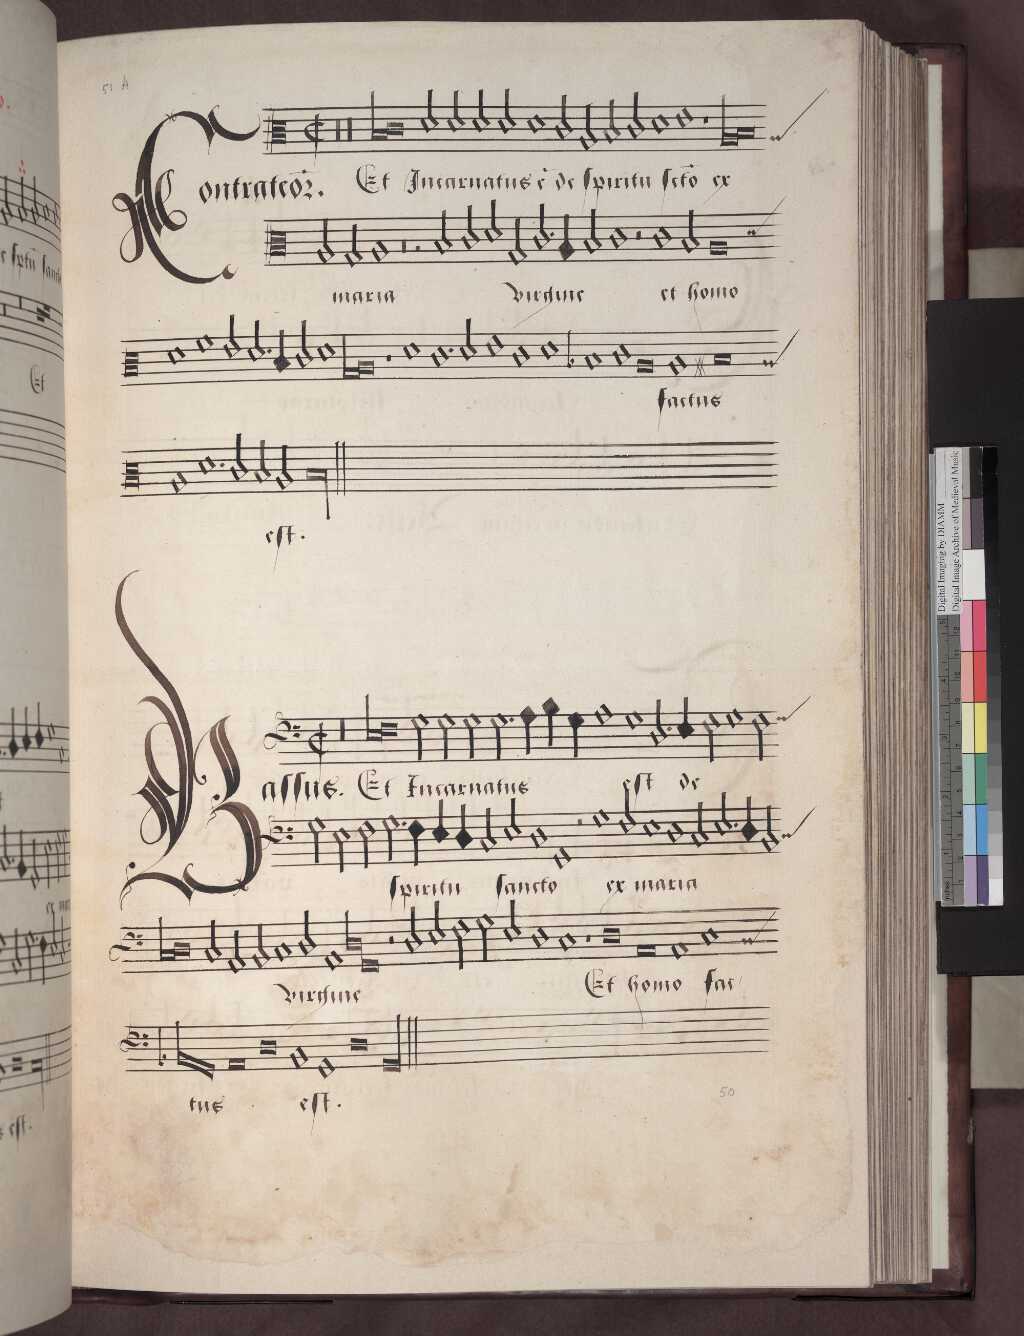 51 A
Contrateor. Et Incarnatus ē de spiritu scto ex
maria virgine et homo
factus
est.
Bassus. Et Incarnatus est de
spiritu sancto ex maria
virgine Et homo fac
tus est.
50
Digital Imaging by DIAMM
Digital Image Archive of Medieval Music
Et